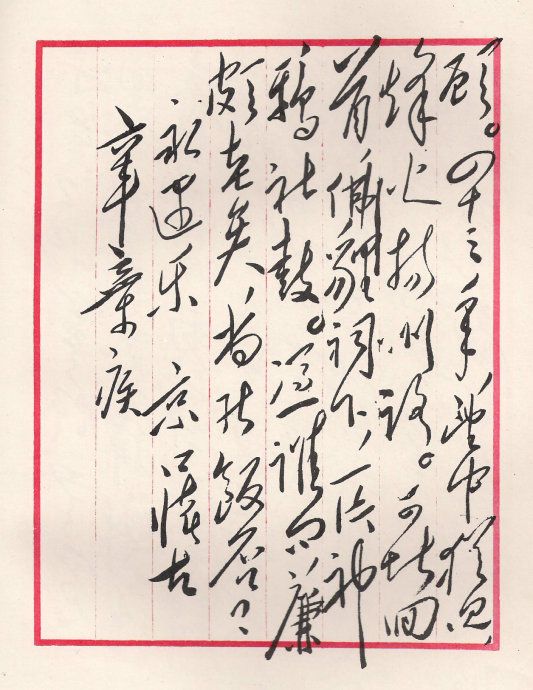 顾。四十三年,望中猶
烽火扬州路。可堪回
首,佛貍祠下,一片神
鴉社鼓。凭谁问,廉
颇老矣,尚能飯否?
永遇乐 京口懷古
辛棄疾